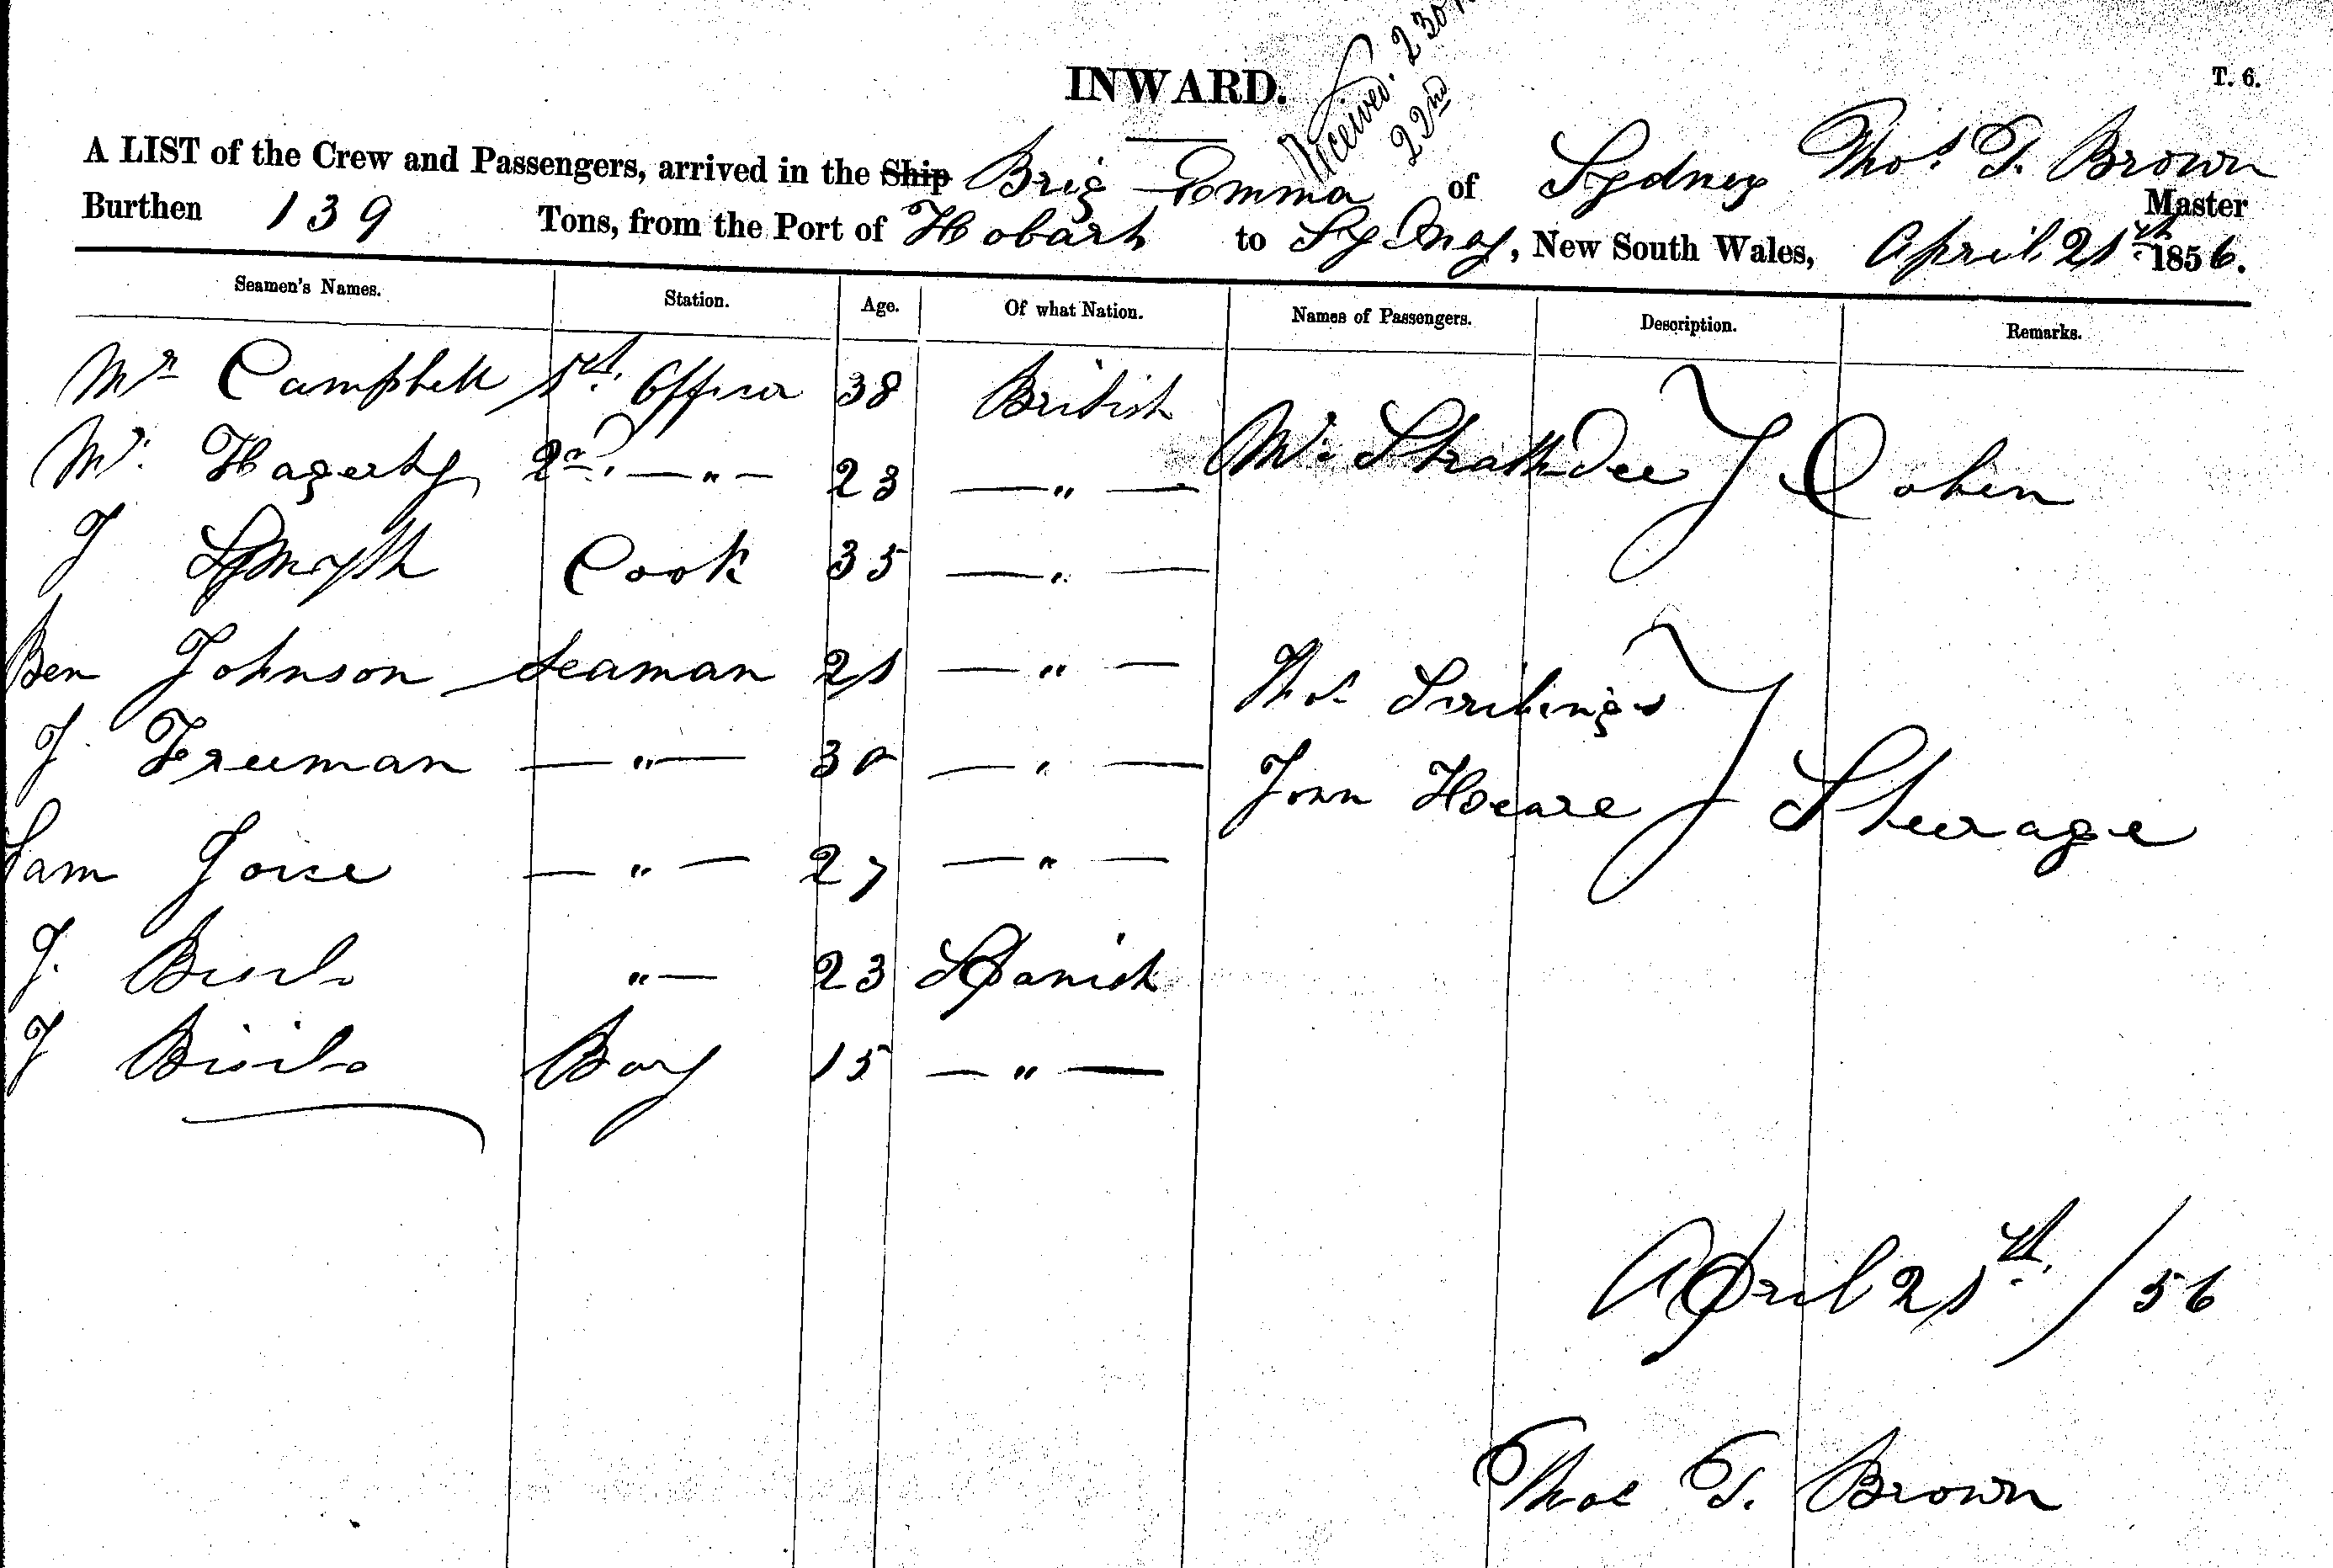 INWARD.
T. 6.
Received. 2 30
22nd
A LIST of the Crew and Passengers, arrived in the Ship Brig Emma of Sydney Thos. T. Brown Master
Burthen 139 Tons, from the Port of Hobart to Sydney, New South Wales, April 21st 1856.
Seamen's Names. Station. Age. Of what Nation. Names of Passengers. Description. Remarks.
Mr Campbell 1st. Officer 38 British
Mr. Hagerty 2nd. —"— 23 —"— Mr. Strathdee } Cabin
J Smyth Cook 35 —"—
Ben Johnson Seaman 21 —"— Thos
J Freeman —"— 30 —"— John Hoeare } Steerage
Sam Joice —"— 27 —"—
J. "— 23 Spanish
J Boy 15 —"—
April 21st. / 56
Thos T. Brown